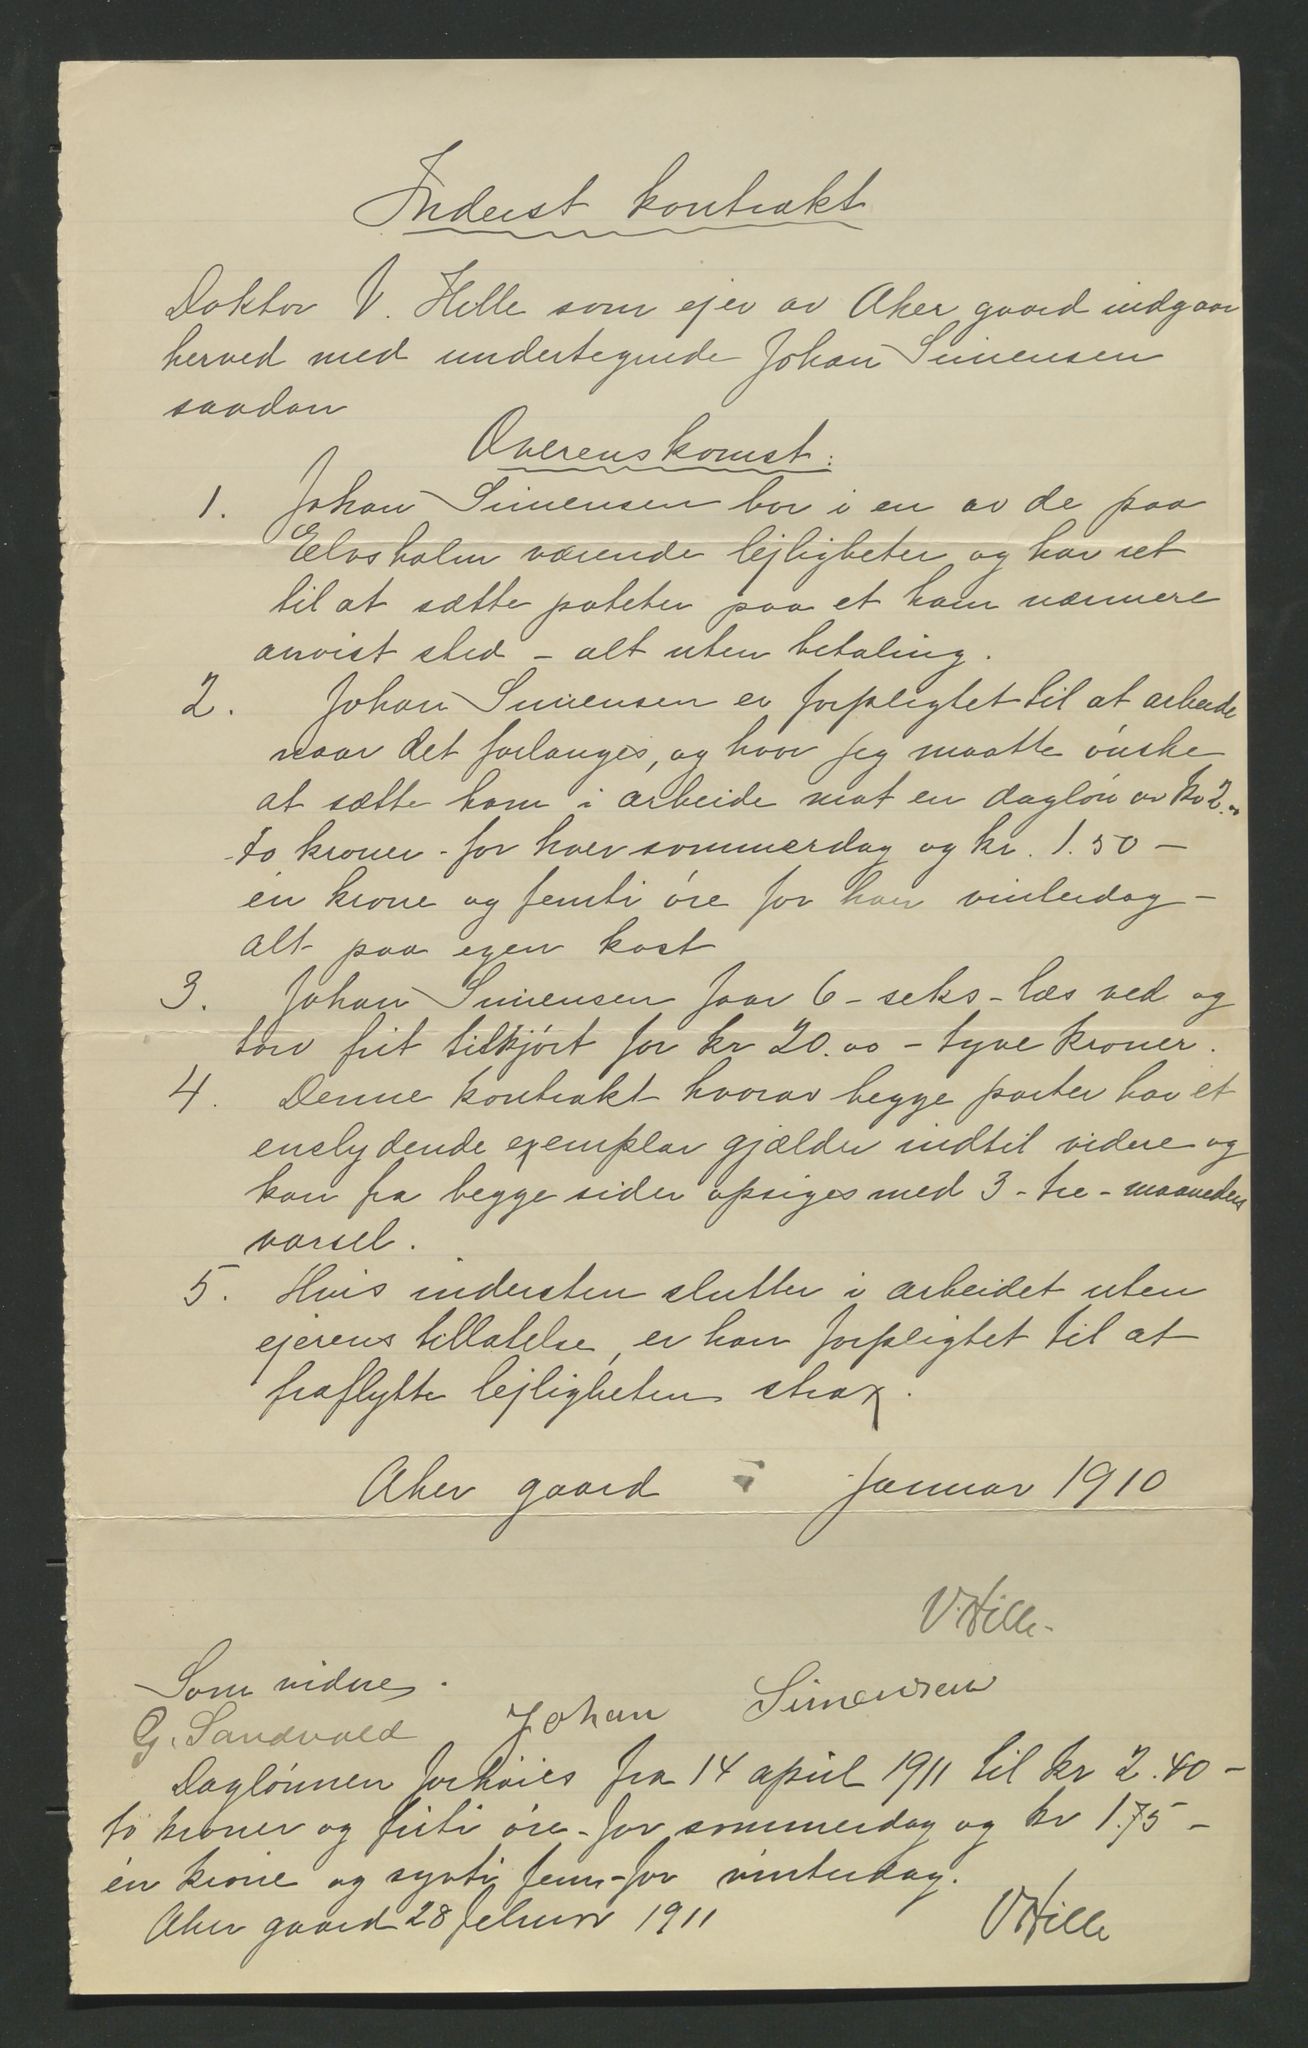 Inderst kontrakt
Doktor V. Hille som ejer av Aker gaard indgaar
herved med undertegnede Johan Simensen
saadan
Overenskomst:
1. Johan Simensen bor i en av de paa
Elvsholm værende lejligheter og har ret
til at sætte poteter paa et ham nærmere
anvist sted - alt uten betaling.
2. Johan Simensen er forpligtet til at arbeide
naar det forlanges, og hvor jeg maatte ønske
at sætte ham i arbeide mot en dagløn av kr 2.00
to kroner - for hver sommerdag og kr. 1.50 -
én krone og femti øre for hver vinterdag -
alt paa egen kost
3. Johan Simensen faar 6 - seks - læs ved og
torv frit tilkjørt for kr 20.00 - tyve kroner.
4. Denne kontrakt hvorav begge parter har et
enslydende exemplar gjælder indtil videre og
kan fra begge sider opsiges med 3 - tre - maaneders
varsel.
5. Hvis indersten slutter i arbeidet uten
ejerens tillatelse, er han forpligtet til at
fraflytte lejligheten strax.
Aker gaard Januar 1910
V. Hille.
Som vidne.
G. Sandvold Johan Simensen
Daglønnen forhøies fra 14 april 1911 til kr 2.40 -
to kroner og firti øre - for sommerdag og kr 1.75 -
én krone og sytti fem - for vinterdag.
Aker gaard 28 februar 1911 V Hille